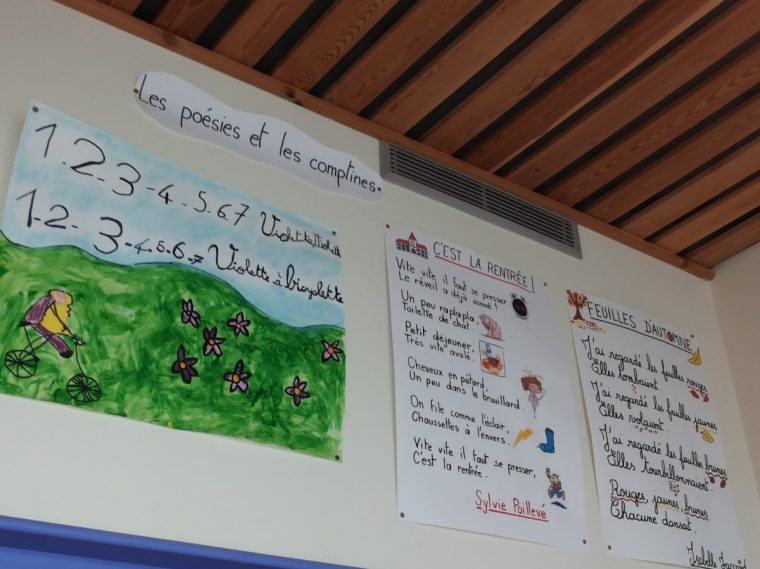 Les poésies et les comptines
1.2.3-4.5.6.7 Violette, Violette
1.2.3-4.5.6.7 Violette à bicyclette
C'EST LA RENTRÉE!
Vite vite il faut se presser
Le réveil a déjà sonné!
Un peu raplapla,
Toilette de chat.
Petit déjeuner,
Très vite avalé.
Cheveux en pétard,
Un peu dans le brouillard.
On file comme l'éclair,
Chaussettes à l'envers.
Vite vite il faut se presser,
C'est la rentrée.
Sylvie Poillevé
FEUILLES D'AUTOMNE
J'ai regardé les feuilles rouges
Elles tombaient
J'ai regardé les feuilles jaunes
Elles volaient.
J'ai regardé les feuilles brunes
Elles tourbillonnaient.
Rouges, jaunes, brunes
Chacune dansait.
Isabelle